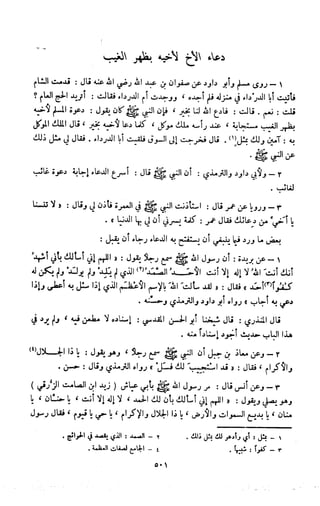 دعاء الأخ لأخيه بظهر الغيب
١ – روى مسلم وأبو داود عن صفوان بن عبد الله رضي الله عنه قال : قدمت الشام
فأتيت أبا الدرداء في منزله فلم أجده ، ووجدت أم الدرداء فقالت : أتريد الحج العام ؟
قلت : نعم . قالت : فادع الله لنا بخير ، فإن النبي ﷺ كان يقول : دعوة المسلم لأخيه
بظهر الغيب مستجابة ، عند رأسه ملك موكل ، كلما دعا لأخيه بخير ، قال الملك الموكل
به : آمين ولك بمثل (١) . قال فخرجت إلى السوق فلقيت أبا الدرداء ، فقال لي مثل ذلك
عن النبي ﷺ .
٢ – ولأبي داود والترمذي : أن النبي ﷺ قال : أسرع الدعاء إجابة دعوة غائب
لغائب .
٣ – ورويا عن عمر قال : استأذنت النبي ﷺ في العمرة فأذن لي وقال : « لا تنسنا
يا أخي من دعائك فقال عمر : كلمة يسرني أن لي بها الدنيا » .
بعض ما ورد فيما ينبغي أن يستفتح به الدعاء رجاء أن يقبل :
١ – عن بريدة : أن رسول الله ﷺ سمع رجلا يقول : « اللهم إني أسألك بأني أشهد
أنك أنت الله لا إله إلا أنت الأحد الصمد (٢) الذي لم يلد ولم يولد ولم يكن له
كفوا (٣) أحد » فقال : « لقد سألت الله بالإسم الأعظم الذي إذا سئل به أعطى وإذا
دعي به أجاب » رواه أبو داود والترمذي وحسنه .
قال المنذري : قال شيخنا أبو الحسن المقدسي : إسناده لا مطعن فيه ، ولم يرد في
هذا الباب حديث أجود إسنادا منه .
٢ – وعن معاذ بن جبل أن النبي ﷺ سمع رجلا ، وهو يقول : يا ذا الجلال (٤)
والأكرام ، فقال : « قد استجيب لك فسل » رواه الترمذي وقال : حسن .
٣ – وعن أنس قال : مر رسول الله ﷺ بأبي عياش ( زيد ابن الصامت الأزرقي )
وهو يصلي ويقول : « اللهم إني أسألك بأن لك الحمد ، لا إله إلا أنت ، يا حنان ، يا
منان ، يا بديع السموات والأرض ، يا ذا الجلال والإكرام ، يا حي يا قيوم ، فقال رسول
١ – بمثل : أي وأدعو لك بمثل ذلك .
٢ – الصمد : الذي يقصد في الحوائج .
٣ – كفوا : شبيها .
٤ – الجامع لصفات العظمة .
٥٠١